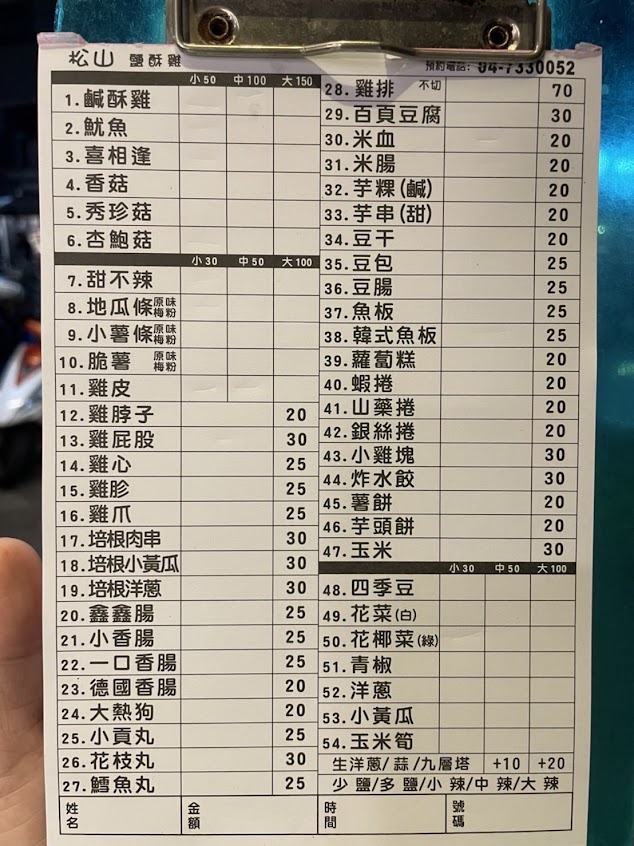 松山 鹽酥雞
預約電話: 04-7330052
小50 中100 大150
1. 鹹酥雞
2. 魷魚
3. 喜相逢
4. 香菇
5. 秀珍菇
6. 杏鮑菇
小30 中50 大100
7. 甜不辣
8. 地瓜條 原味 梅粉
9. 小薯條 原味 梅粉
10. 脆薯 原味 梅粉
11. 雞皮
12. 雞脖子 20
13. 雞屁股 30
14. 雞心 25
15. 雞胗 25
16. 雞爪 25
17. 培根肉串 30
18. 培根小黃瓜 30
19. 培根洋蔥 30
20. 鑫鑫腸 25
21. 小香腸 25
22. 一口香腸 25
23. 德國香腸 20
24. 大熱狗 20
25. 小貢丸 25
26. 花枝丸 30
27. 鱈魚丸 25
28. 雞排 不切 70
29. 百頁豆腐 30
30. 米血 20
31. 米腸 20
32. 芋粿(鹹) 20
33. 芋串(甜) 20
34. 豆干 20
35. 豆包 25
36. 豆腸 25
37. 魚板 25
38. 韓式魚板 25
39. 蘿蔔糕 20
40. 蝦捲 20
41. 山藥捲 20
42. 銀絲捲 20
43. 小雞塊 30
44. 炸水餃 30
45. 薯餅 20
46. 芋頭餅 20
47. 玉米 30
小30 中50 大100
48. 四季豆
49. 花菜(白)
50. 花椰菜(綠)
51. 青椒
52. 洋蔥
53. 小黃瓜
54. 玉米筍
生洋蔥/蒜/九層塔 +10 +20
少鹽/多鹽/小辣/中辣/大辣
姓名 金額 時間 號碼